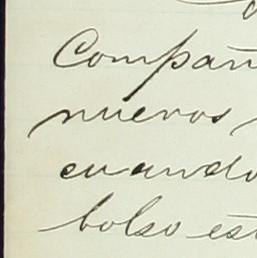 Compañ
nuevos
cuando
bolso est